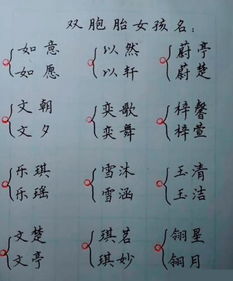 双胞胎女孩名：
如意 以然 蔚亭
如愿 以轩 蔚楚
文朝 奕歌 梓馨
文夕 奕舞 梓萱
乐琪 雪沐 玉清
乐瑶 雪涵 玉洁
文楚 琪茗 翎星
文亭 琪妙 翎月